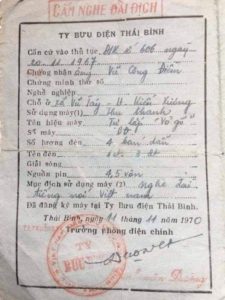 CẤM NGHE ĐÀI ĐỊCH
TY BƯU ĐIỆN THÁI BÌNH
Căn cứ vào thủ tục ĐK số 606 ngày
20-11-1967
Chứng nhận ông Vũ Công Điềm
Chứng minh thư số
Nghề nghiệp
Chỗ ở xã Vũ Tây - H. Kiến Xương
Sử dụng máy(1) Thu thanh
Tên hiệu máy Tự lắp "Vỏ gỗ"
Số máy
Số đèn 4 bán dẫn
Tên đèn
Giải sóng
Nguồn pin 4,5 vôn
Mục đích sử dụng máy (2) Nghe đài
tiếng nói Việt Nam
Đã đăng ký máy tại Ty Bưu điện Thái Bình.
Thái Bình, ngày 11 tháng 11 năm 1970
Trưởng phòng điện chính
TY
BƯU